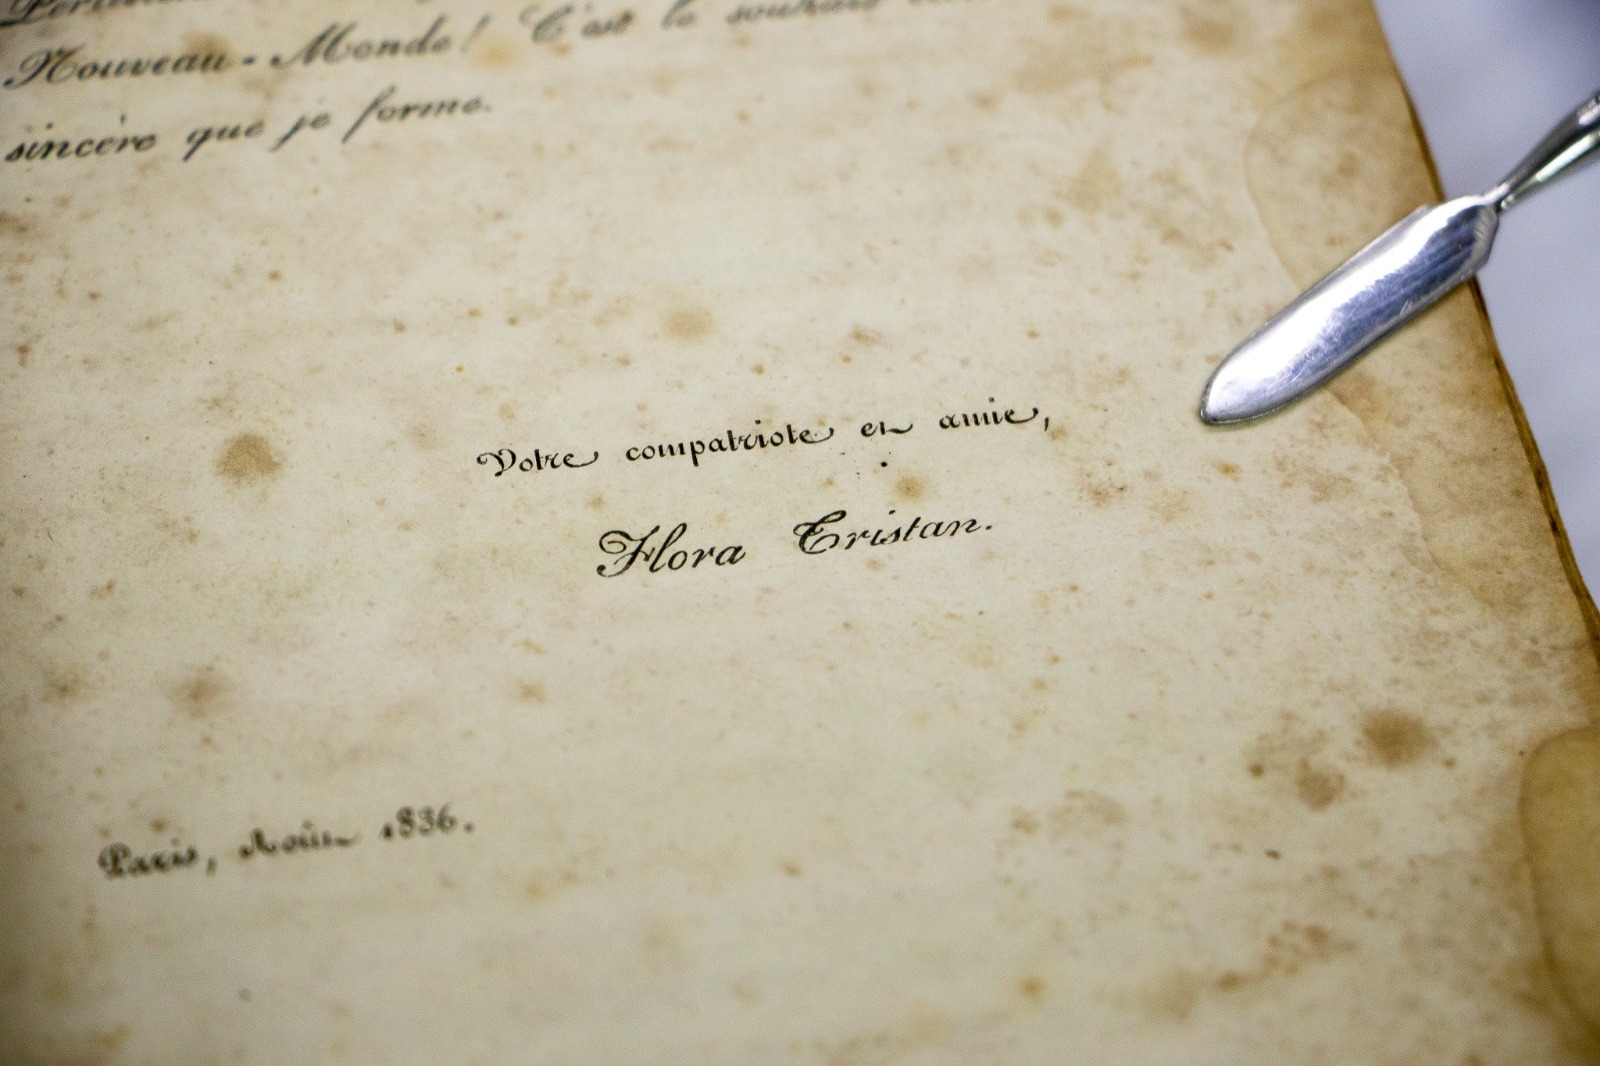 Nouveau-Monde! C'est le souhait
sincère que je forme.
Votre compatriote et amie,
Flora Tristan.
Paris, Août 1836.